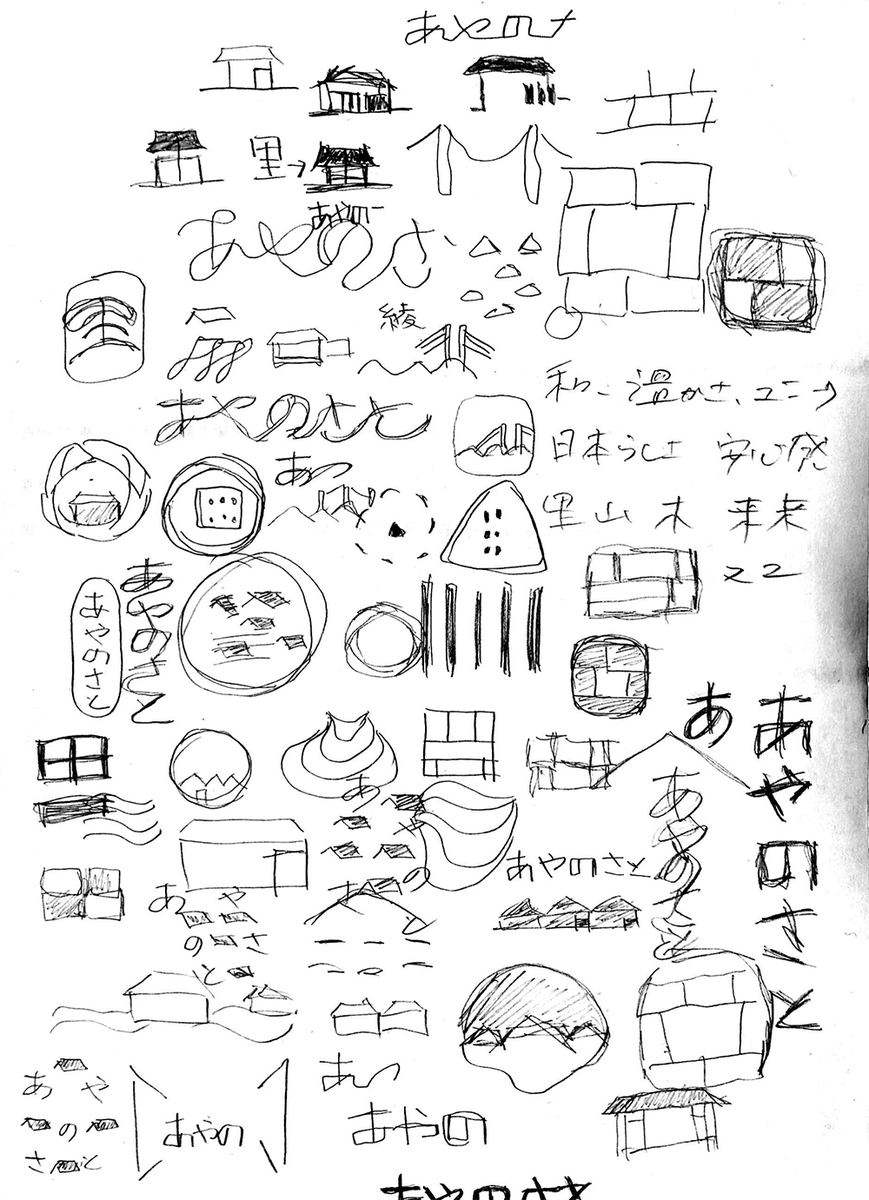 あやのさ
里
あやの
あやのさ
綾
和 温かさ、ユニーク
あやのさと
日本らしさ 安心感
あや
里 山 木 未来
あやのさと
あやのさと
あ
あやのさと
あやのさと
あやのさと
あやのさと
あやのさと
あやのさと
あや
あやの
あやの
あやのさ